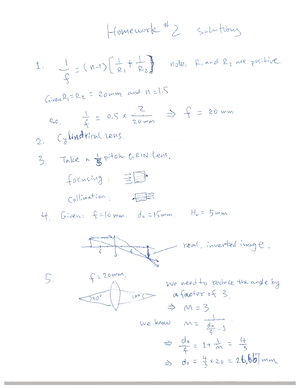 Homework #2 solutions
1. 1/f = (n-1) [1/R₁ + 1/R₂] note, R₁ and R₂ are positive
Given R₁=R₂ = 20mm and n=1.5
so, 1/f = 0.5 × 2/20mm ⇒ f = 20mm
2. Cylindrical lens.
3. Take a pitch GRIN lens.
focusing:
Collimation:
4. Given: f=10mm d₀=15mm H₀=5mm
real, inverted image.
5. f=20mm.
We need to reduce the angle by
a factor of 3.
⇒ M = 3
We know M = 1/(d₀/f - 1)
⇒ d₀/f = 1 + 1/M = 4/3
⇒ d₀ = 4/3 × 20 = 26.67mm